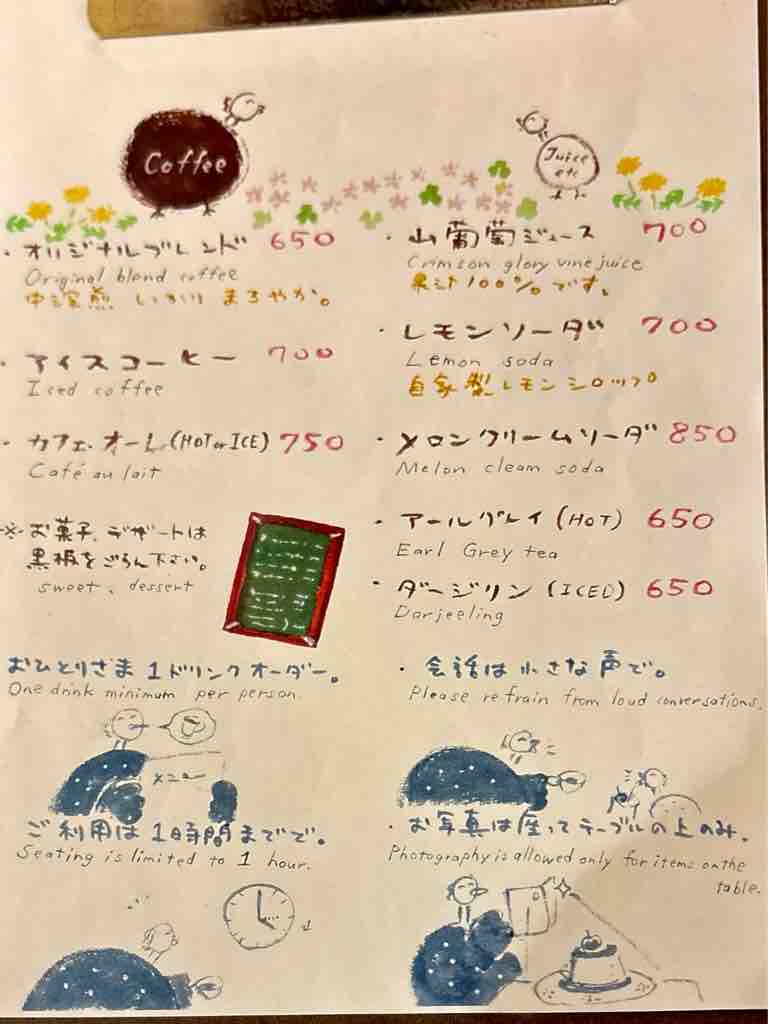 Coffee
・オリジナルブレンド 650
Original blend coffee
中深煎 しっかり まろやか。
・アイスコーヒー 700
Iced coffee
・カフェ・オーレ(HOT or ICE) 750
Café au lait
※お菓子、デザートは
黒板をごらん下さい。
sweet、dessert
Juice
etc
・山葡萄ジュース 700
Crimson glory vine juice
果汁100%です。
・レモンソーダ 700
Lemon soda
自家製レモンシロップ
・メロンクリームソーダ 850
Melon cleam soda
・アールグレイ(HOT) 650
Earl Grey tea
・ダージリン(ICED) 650
Darjeeling
おひとりさま1ドリンクオーダー。
One drink minimum per person.
メニュー
ご利用は1時間までで。
Seating is limited to 1 hour.
・会話は小さな声で。
Please refrain from loud conversations.
・お写真は座ってテーブルの上のみ。
Photography is allowed only for items on the
table.